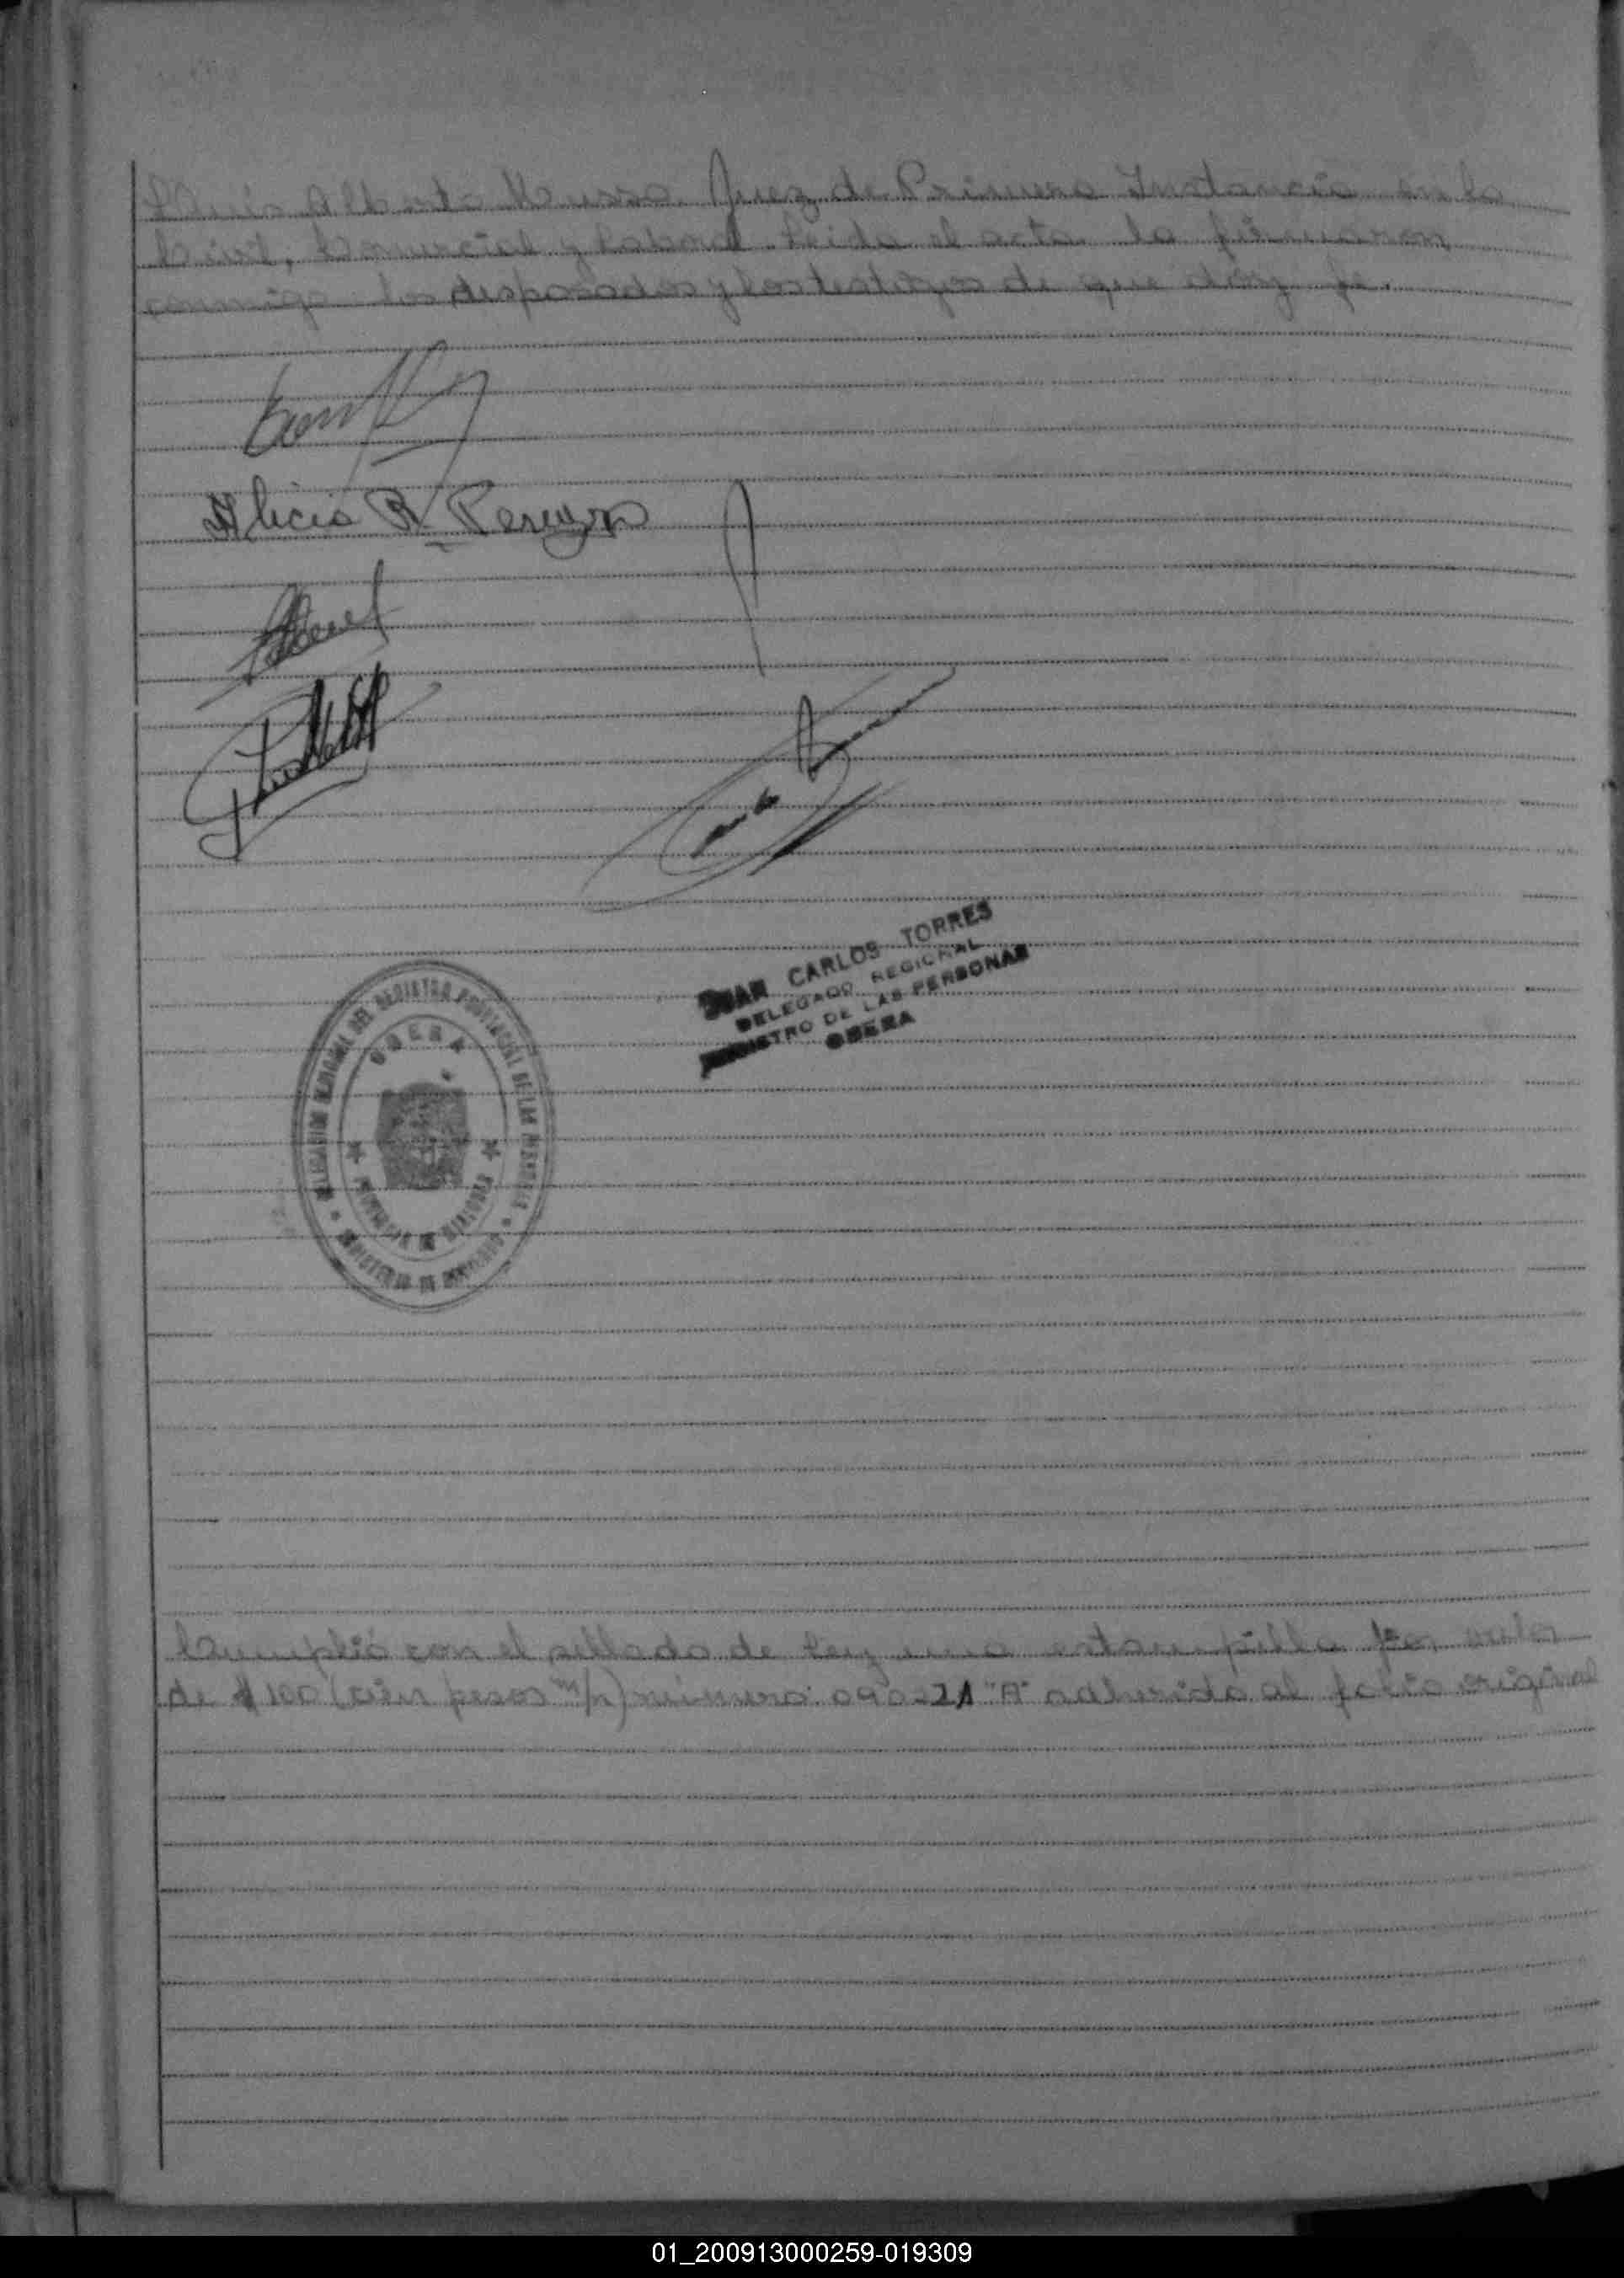 Juez de Primera Instancia en lo
Civil, Comercial y Laboral Leida el acta la firmaron
conmigo los desposados y los testigos de que doy fe.
Alicia R. Pereyra
JUAN CARLOS TORRES
DELEGADO REGIONAL
REGISTRO DE LAS PERSONAS
OBERA
DELEGACION REGIONAL DEL REGISTRO PROVINCIAL DE LAS PERSONAS
OBERA
PROVINCIA DE MISIONES
MINISTERIO DE GOBIERNO
Cumplió con el sellado de Ley una estampilla por valor
de $ 100 (cien pesos m/n) número "A" adherida al folio original
01_200913000259-019309